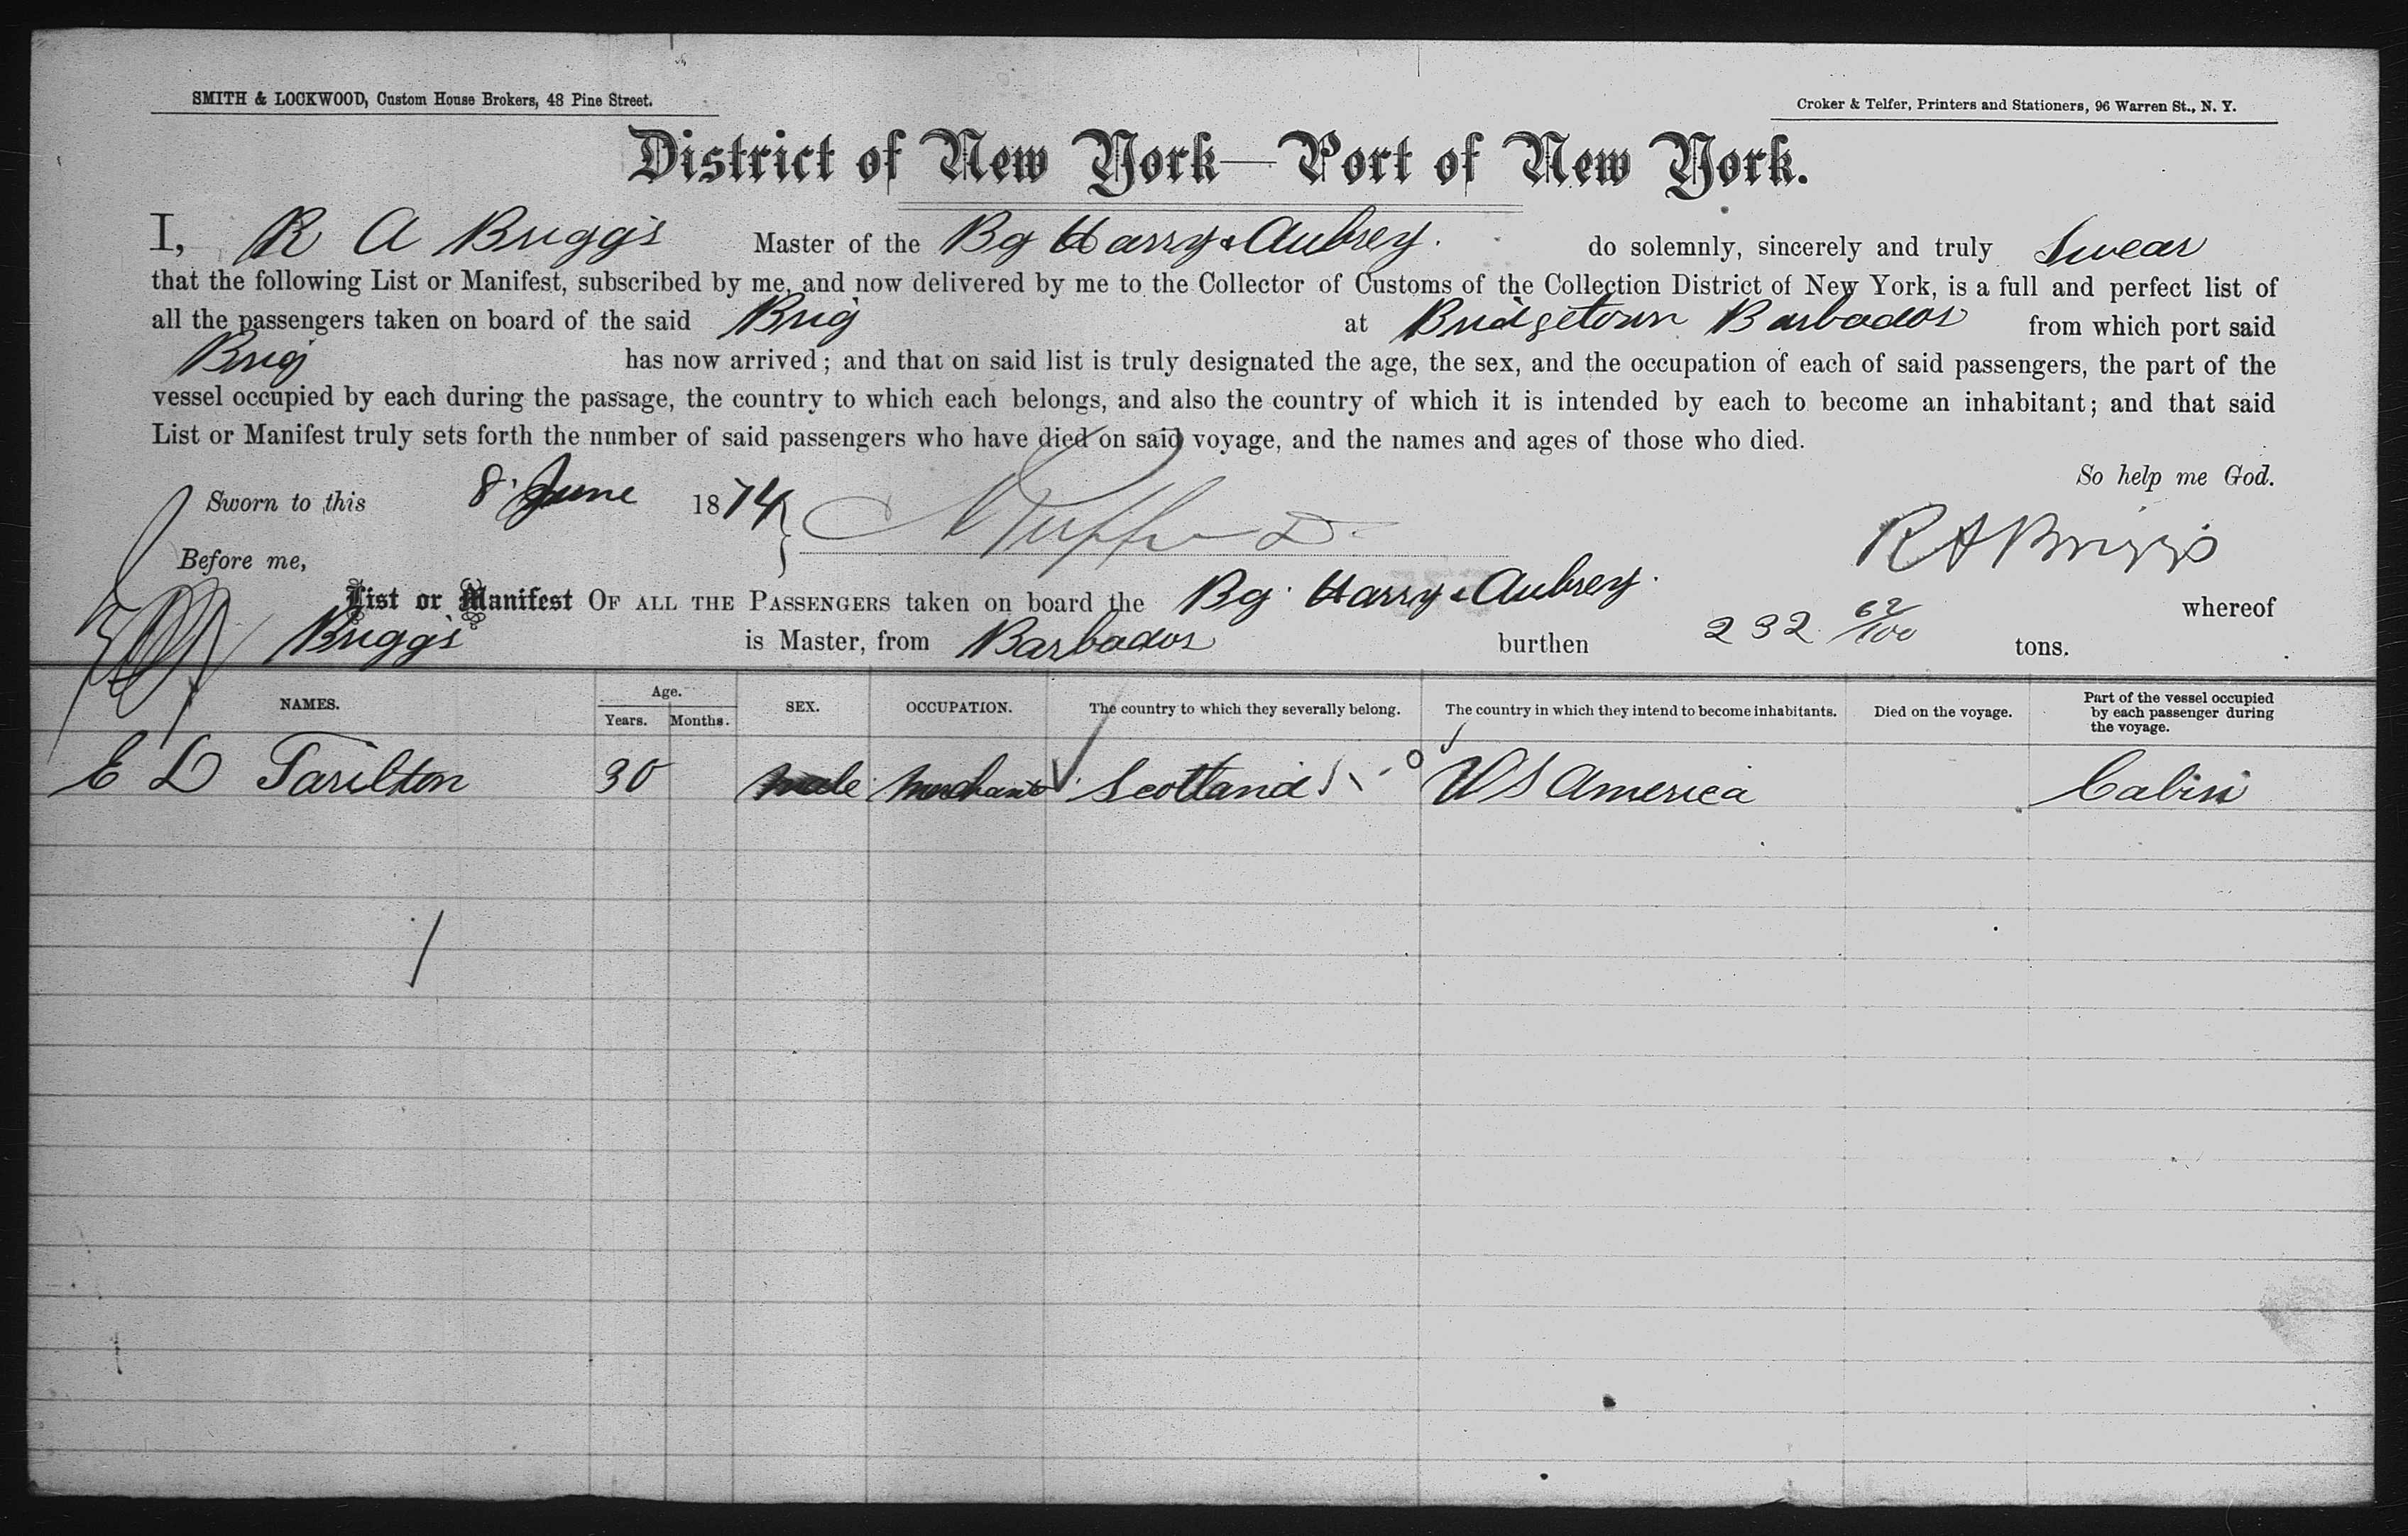 SMITH & LOCKWOOD, Custom House Brokers, 48 Pine Street.
Croker & Telfer, Printers and Stationers, 96 Warren St., N. Y.
District of New York—Port of New York.
I, R A Briggs Master of the Bg Harry & Aubrey. do solemnly, sincerely and truly Swear
that the following List or Manifest, subscribed by me, and now delivered by me to the Collector of Customs of the Collection District of New York, is a full and perfect list of
all the passengers taken on board of the said Brig at Bridgetown Barbados from which port said
Brig has now arrived; and that on said list is truly designated the age, the sex, and the occupation of each of said passengers, the part of the
vessel occupied by each during the passage, the country to which each belongs, and also the country of which it is intended by each to become an inhabitant; and that said
List or Manifest truly sets forth the nnmber of said passengers who have died on said voyage, and the names and ages of those who died.
So help me God.
Sworn to this 8 June 1874
R A Briggs
Before me,
List or Manifest OF ALL THE PASSENGERS taken on board the Bg Harry & Aubrey. whereof
Briggs is Master, from Barbados burthen 232 62/100 tons.
NAMES. Age. Years. Months. SEX. OCCUPATION. The country to which they severally belong. The country in which they intend to become inhabitants. Died on the voyage. Part of the vessel occupied by each passenger during the voyage.
E D Tarilton 30 male merchant Scotland U S America Cabin
1